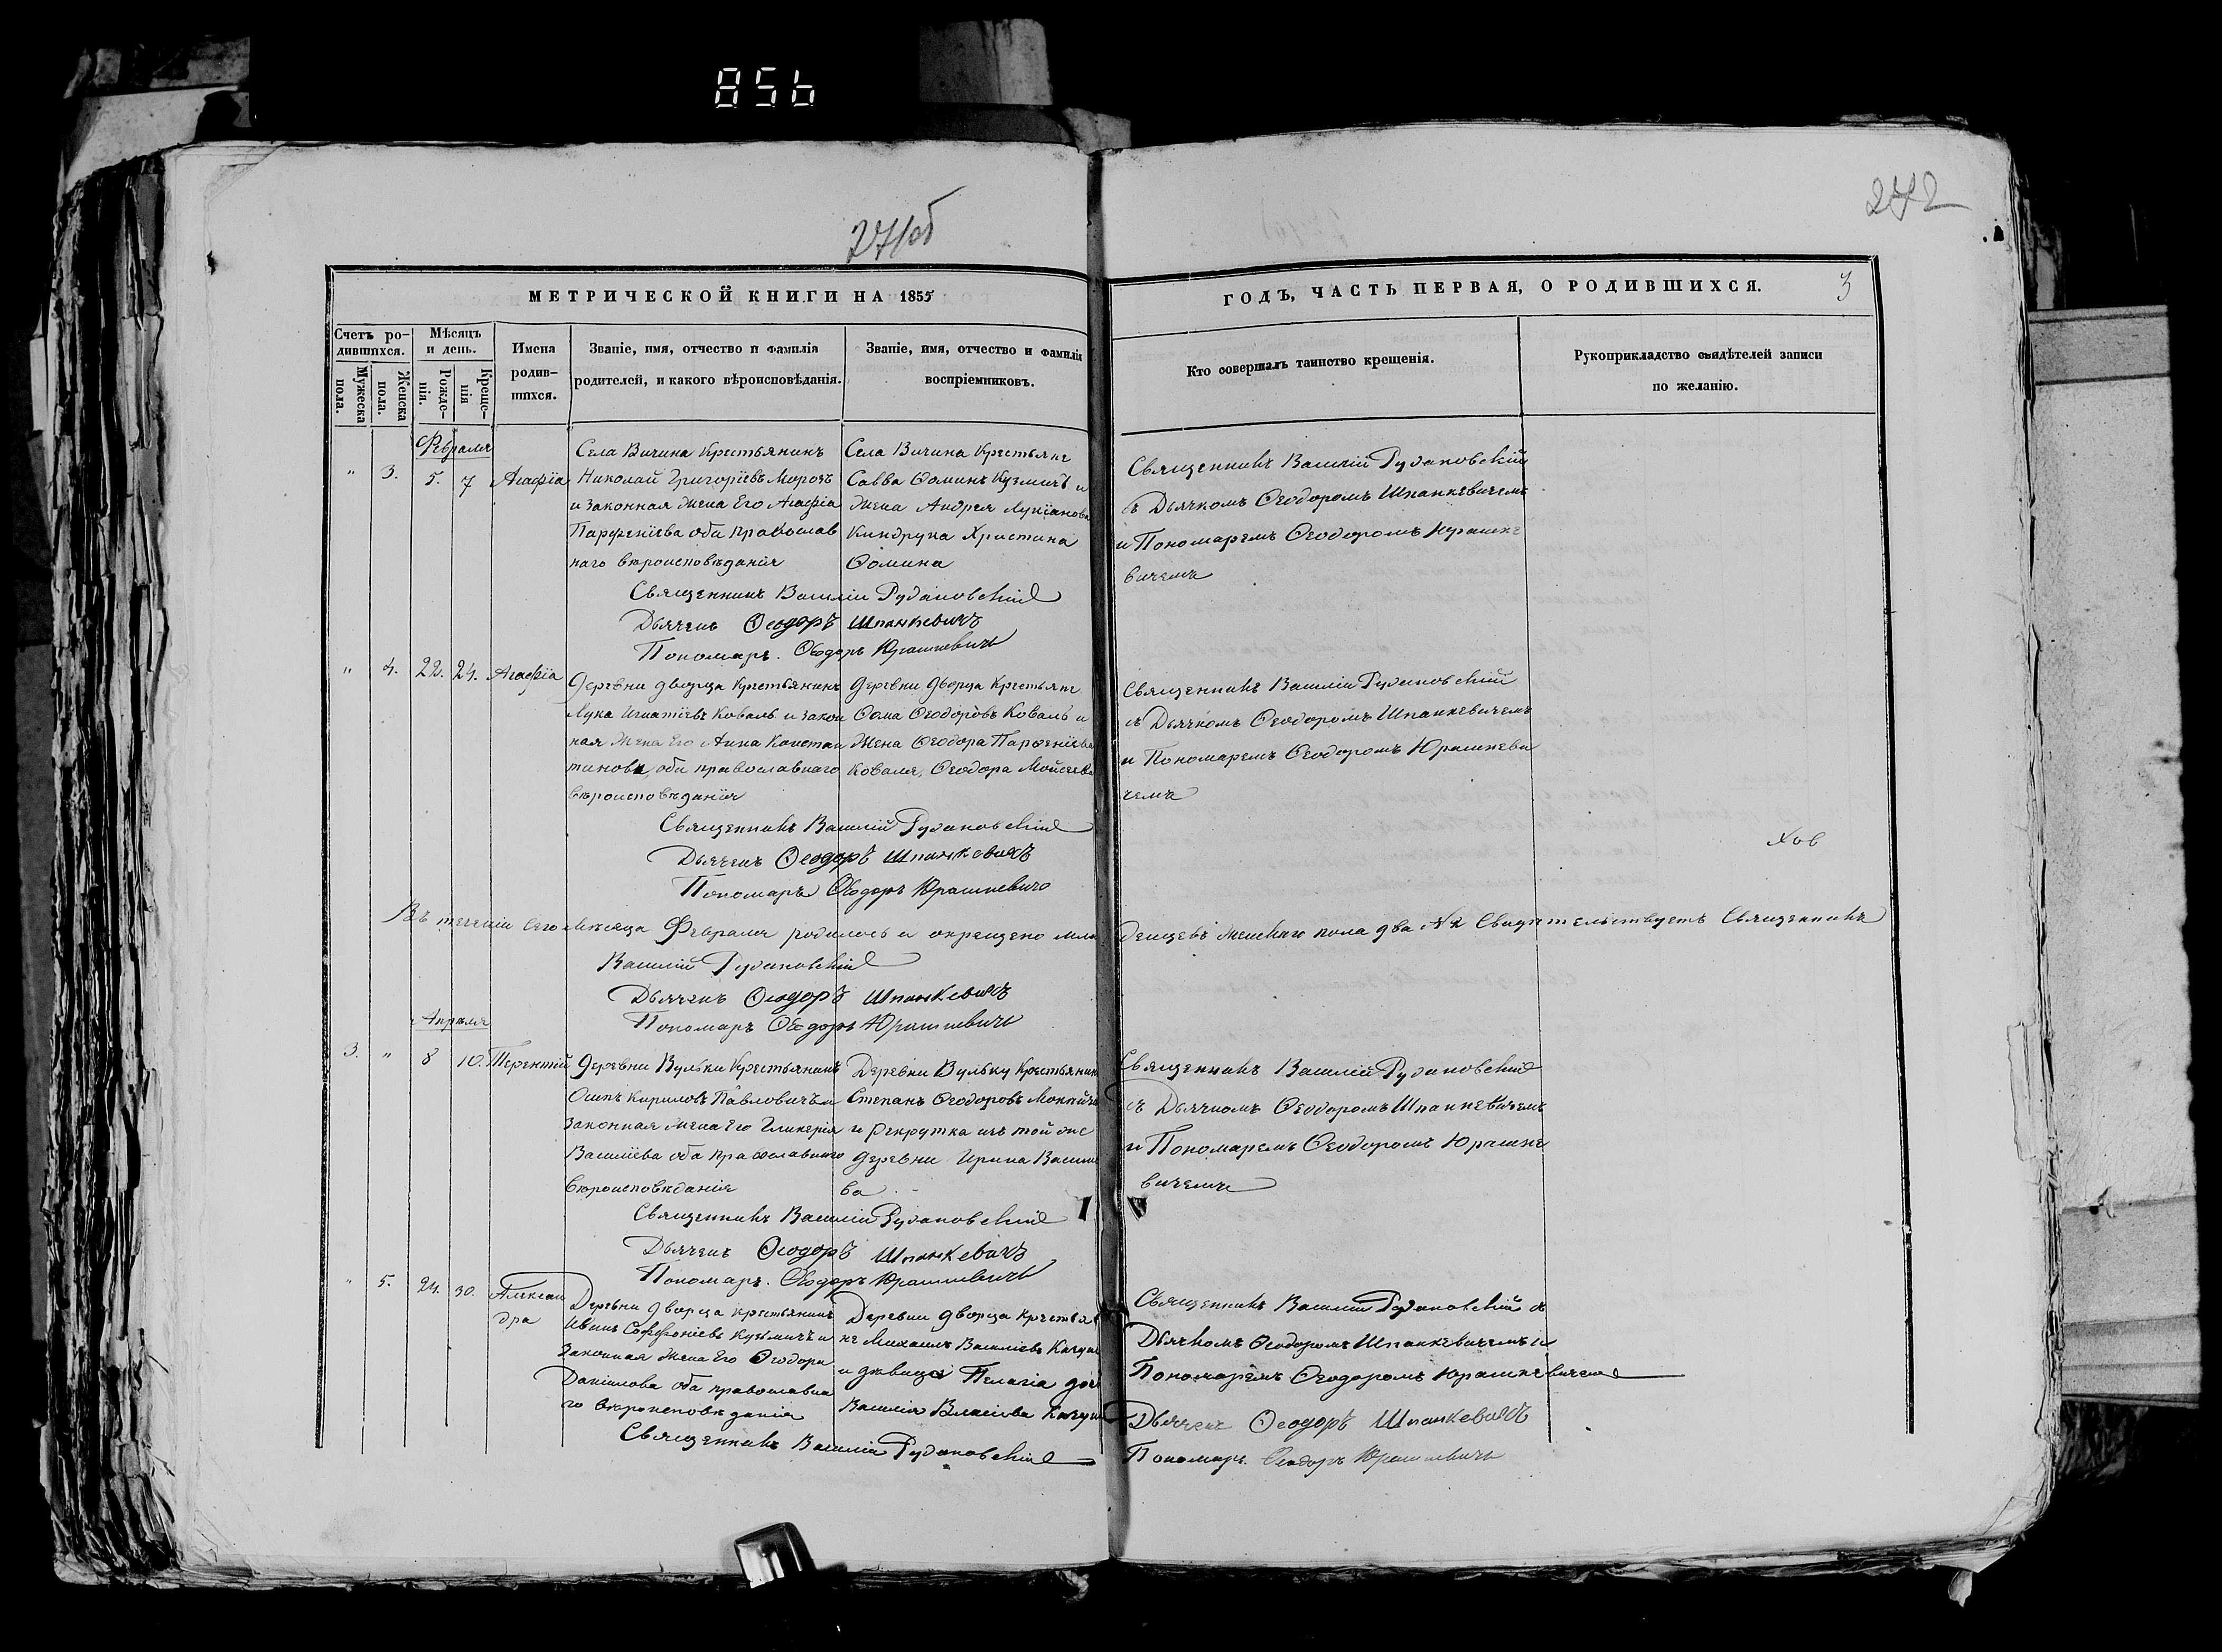 856
271об
272
МЕТРИЧЕСКОЙ КНИГИ НА 1855
ГОДЪ, ЧАСТЬ ПЕРВАЯ, О РОДИВШИХСЯ.
3
Счетъ ро-
дившихся.
Мужеска
пола.
Женска
пола.
Мѣсяцъ
и день.
Рожде-
нія.
Креще-
нія
Имена
родив-
шихся.
Званіе, имя, отчество и фамилія
родителей, и какого вѣроисповѣданія.
Званіе, имя, отчество и фамилія
воспріемниковъ.
Кто совершалъ таинство крещенія.
Рукоприкладство свидѣтелей записи
по желанію.
Февраля
" 3. 5. 7 Агафіа
Села Вичина Крестьянинъ
Николай Григоріевъ Морозъ
и законная жена Его Агафіа
Парфеніева оба православ
наго вѣроисповѣданія
Села Вичина Крестьяне
Савва Ѳоминъ Кузмичъ и
жена Андрея Лукіанова
Киндрука Христина
Ѳомина
Священникъ Василій Рудановскій
съ Дьячкомъ Ѳеодоромъ Шпанкевичемъ
и Пономаремъ Ѳеодоромъ Юрашке
вичемъ
Священникъ Василій Рудановскій
Дьячекъ Ѳеодоръ Шпанкевичъ
Пономарь. Ѳеодоръ Юрашкевичъ
" 4. 22. 24. Агафіа
Деревни дворца Крестьянинъ
Лука Игнатіевъ Коваль и закон
ная жена Его Анна Констан
тинова, оба православнаго
вѣроисповѣданія
Деревни дворца Крестьяне
Ѳома Ѳеодоровъ Коваль и
жена Ѳеодора Парфеніева
Коваля, Ѳеодора Мойсеева
Священникъ Василій Рудановскій
съ Дьячкомъ Ѳеодоромъ Шпанкевичемъ
и Пономаремъ Ѳеодоромъ Юрашкеви
чемъ
Священникъ Василій Рудановскій
Дьячекъ Ѳеодоръ Шпанкевичъ
Пономарь Ѳеодоръ Юрашкевичъ
Въ теченіи сего мѣсяца Февраля родилось и окрещено мла
денцевъ женскаго пола два № 2 Свидѣтельствуетъ Священникъ
Василій Рудановскій
Дьячекъ Ѳеодоръ Шпанкевичъ
Пономарь Ѳеодоръ Юрашкевичъ
Апрѣля
3. " 8 10. Терентій
Деревни Вульки Крестьянинъ
Осипъ Кириловъ Павловичъ и
законная жена Его Гликерія
Василіева оба православнаго
вѣроисповѣданія
Деревни Вульку Крестьянинъ
Степанъ Ѳеодоровъ
и рекрутка изъ той же
деревни Ирина Василіе
ва
Священникъ Василій Рудановскій
съ Дьячкомъ Ѳеодоромъ Шпанкевичемъ
и Пономаремъ Ѳеодоромъ Юрашке
вичемъ
Священникъ Василій Рудановскій
Дьячекъ Ѳеодоръ Шпанкевичъ
Пономарь. Ѳеодоръ Юрашкевичъ
" 5. 24. 30. Алексан
дра
Деревни дворца крестьянинъ
Иванъ Софроніевъ Кузмичъ и
законная жена Его Ѳеодора
Даніилова оба православна
го вѣроисповѣданія
Деревни дворца крестья
не Михаилъ Василіевъ
и дѣвица Пелагіа доч
Василія Власіова
Священникъ Василій Рудановскій съ
Дьячкомъ Ѳеодоромъ Шпанкевичемъ и
Пономаремъ Ѳеодоромъ Юрашкевичемъ
Священникъ Василій Рудановскій
Дьячекъ Ѳеодоръ Шпанкевичъ
Пономарь. Ѳеодоръ Юрашкевичъ